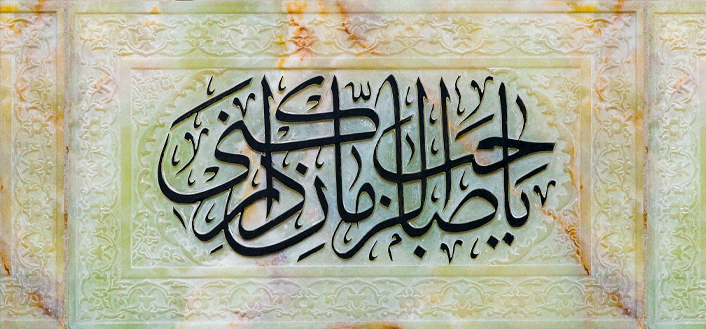 يا صاحب الزّمان ادركنى